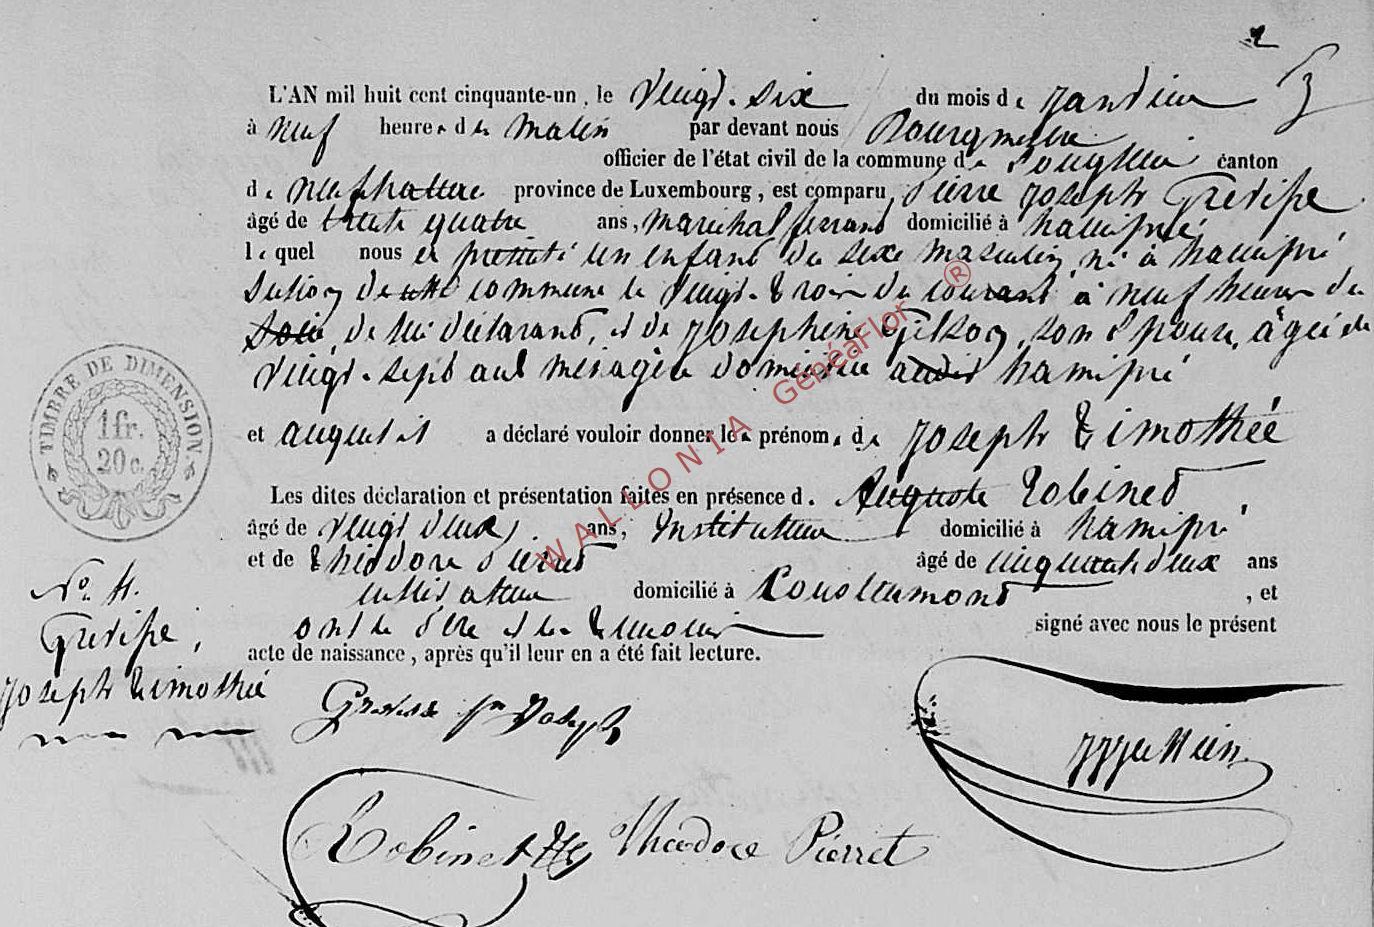 2
L'AN mil huit cent cinquante-un, le vingt-six du mois de janvier
à neuf heures du matin par devant nous Bourgmestre
officier de l'état civil de la commune de Longlier canton
de neufchateau province de Luxembourg, est comparu Pierre joseph Grévisse
âgé de trente quatre ans, maréchal ferrant domicilié à hamipré
lequel nous a présenté un enfant du sexe masculin, né à hamipré
section de cette commune le vingt-trois du courant à neuf heures du
soir de lui déclarant, et de josephine Gilson, son épouse, âgée de
vingt-sept ans ménagère domiciliée audit hamipré
et auquel il a déclaré vouloir donner les prénoms de joseph timothée
Les dites déclaration et présentation faites en présence de Auguste robinet
âgé de vingt deux ans, Instituteur domicilié à hamipré
et de théodore pierret âgé de cinquante deux ans
cultivateur domicilié à Couslumont, et
ont le père et les témoins signé avec nous le présent
acte de naissance, après qu'il leur en a été fait lecture.
TIMBRE DE DIMENSION
1fr.
20c.
No. 4.
Grévisse,
joseph timothée
Grevisse pre Joseph
Robinet Theodore Pierret
WALLONIA GénéaFlor ®